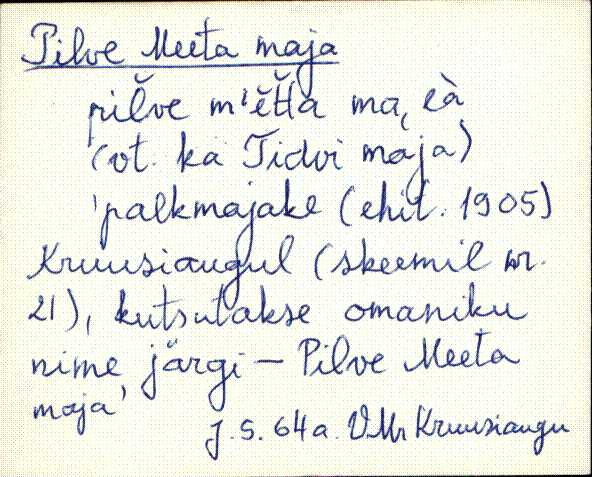 Pilve Meeta maja
pilve m'ĕt̆t̆a ma, eà
(vt. ka Tidvi maja)
'palkmajake (ehit. 1905)
Kruusiaugul (skeemil nr.
21), kutsutakse omaniku
nime järgi — Pilve Meeta
maja'
J. S. 64a. VMr Kruusiaugu